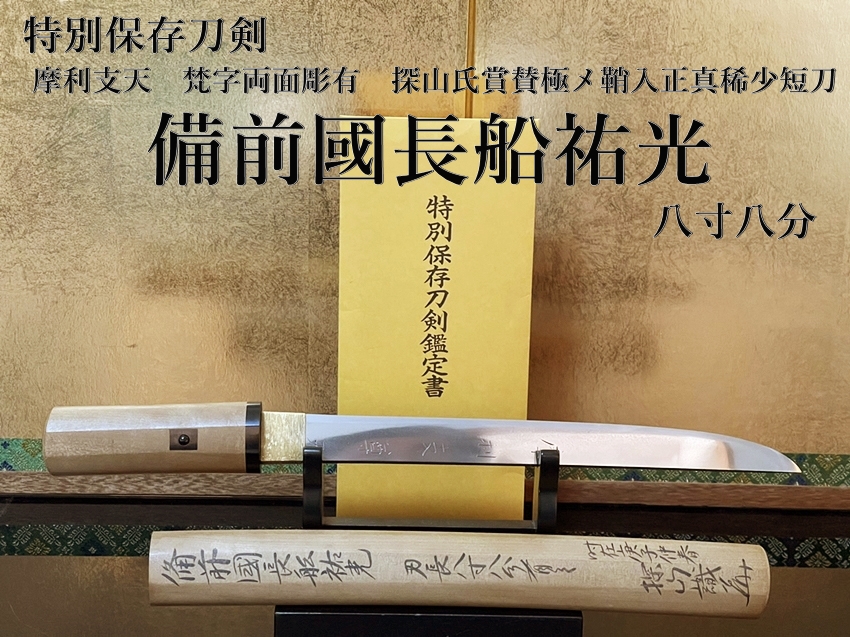 特別保存刀剣
摩利支天　梵字両面彫有　探山氏賞賛極メ鞘入正真稀少短刀
備前國長船祐光
八寸八分
特別保存刀剣鑑定書
摩利支天
備前國長船祐光
刃長八寸八分有之
時在庚子仲春
探山識